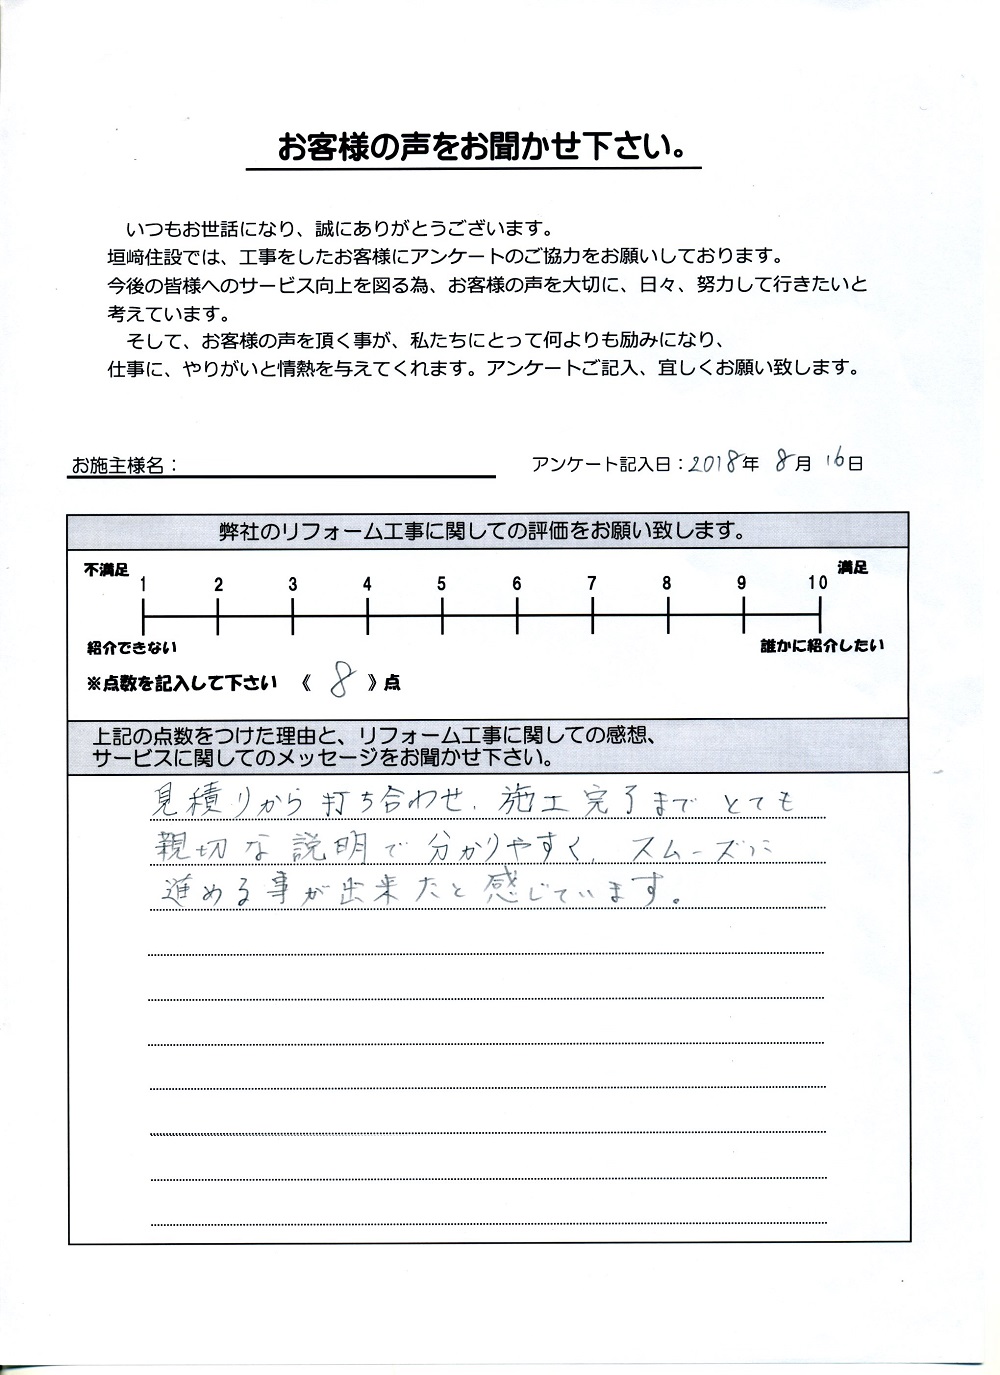 お客様の声をお聞かせ下さい。
いつもお世話になり、誠にありがとうございます。
垣﨑住設では、工事をしたお客様にアンケートのご協力をお願いしております。
今後の皆様へのサービス向上を図る為、お客様の声を大切に、日々、努力して行きたいと
考えています。
そして、お客様の声を頂く事が、私たちにとって何よりも励みになり、
仕事に、やりがいと情熱を与えてくれます。アンケートご記入、宜しくお願い致します。
お施主様名：
アンケート記入日：2018年 8月 16日
弊社のリフォーム工事に関しての評価をお願い致します。
不満足 満足
1 2 3 4 5 6 7 8 9 10
紹介できない 誰かに紹介したい
※点数を記入して下さい 《 8 》点
上記の点数をつけた理由と、リフォーム工事に関しての感想、
サービスに関してのメッセージをお聞かせ下さい。
見積りから打ち合わせ、施工完了までとても
親切な説明で分かりやすく、スムーズに
進める事が出来たと感じています。